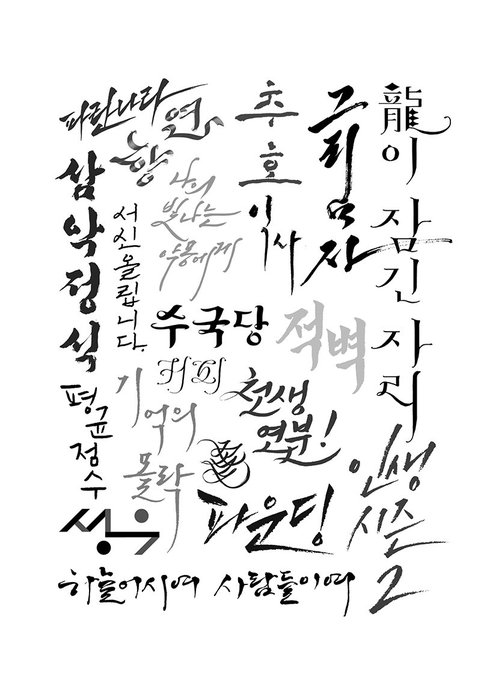 파란나라
연
향
추
호
이
사
그림자
龍이 잠긴 자리
삼악정식
서신 올립니다.
나의
빛나는
악몽에게
수국당
적벽
기억의
몰락
천생
연분!
평균정수
파운딩
인생
시즌
2
하늘이시여 사람들이여